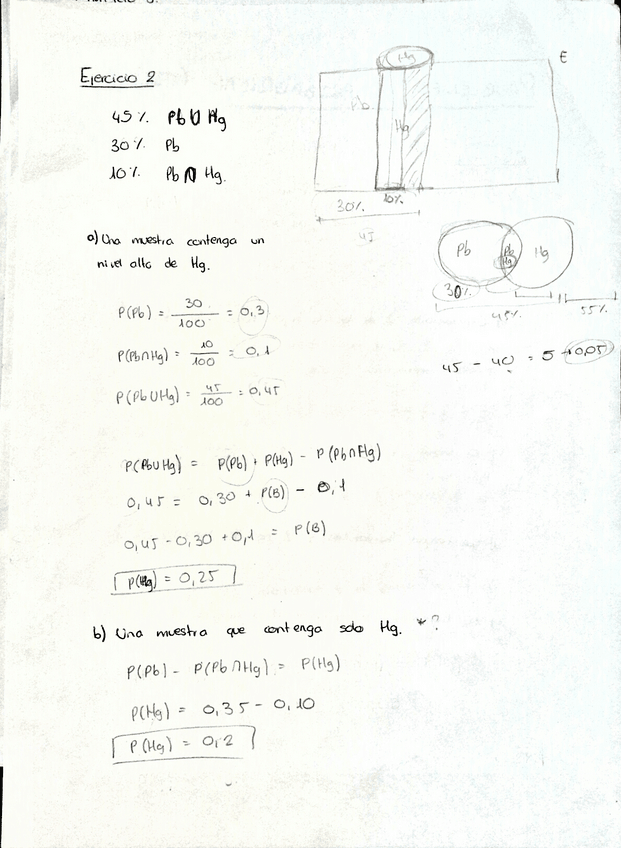 Ejercicio 2
45 % Pb U Hg
30 % Pb
10 % Pb ∩ Hg.
E
Hg
Pb
Hg
30%
10%
45
a) Una muestra contenga un
nivel alto de Hg.
Pb
Pb
Hg
Hg
30%
45%
55%
45 - 40 = 5 → 0,05
P(Pb) = 30/100 = 0,3
P(Pb∩Hg) = 10/100 = 0,1
P(PbUHg) = 45/100 = 0,45
P(PbUHg) = P(Pb) + P(Hg) - P(Pb∩Hg)
0,45 = 0,30 + P(B) - 0,1
0,45 - 0,30 + 0,1 = P(B)
P(Hg) = 0,25
b) Una muestra que contenga solo Hg. *?
P(Pb) - P(Pb∩Hg) = P(Hg)
P(Hg) = 0,35 - 0,10
P(Hg) = 0,2